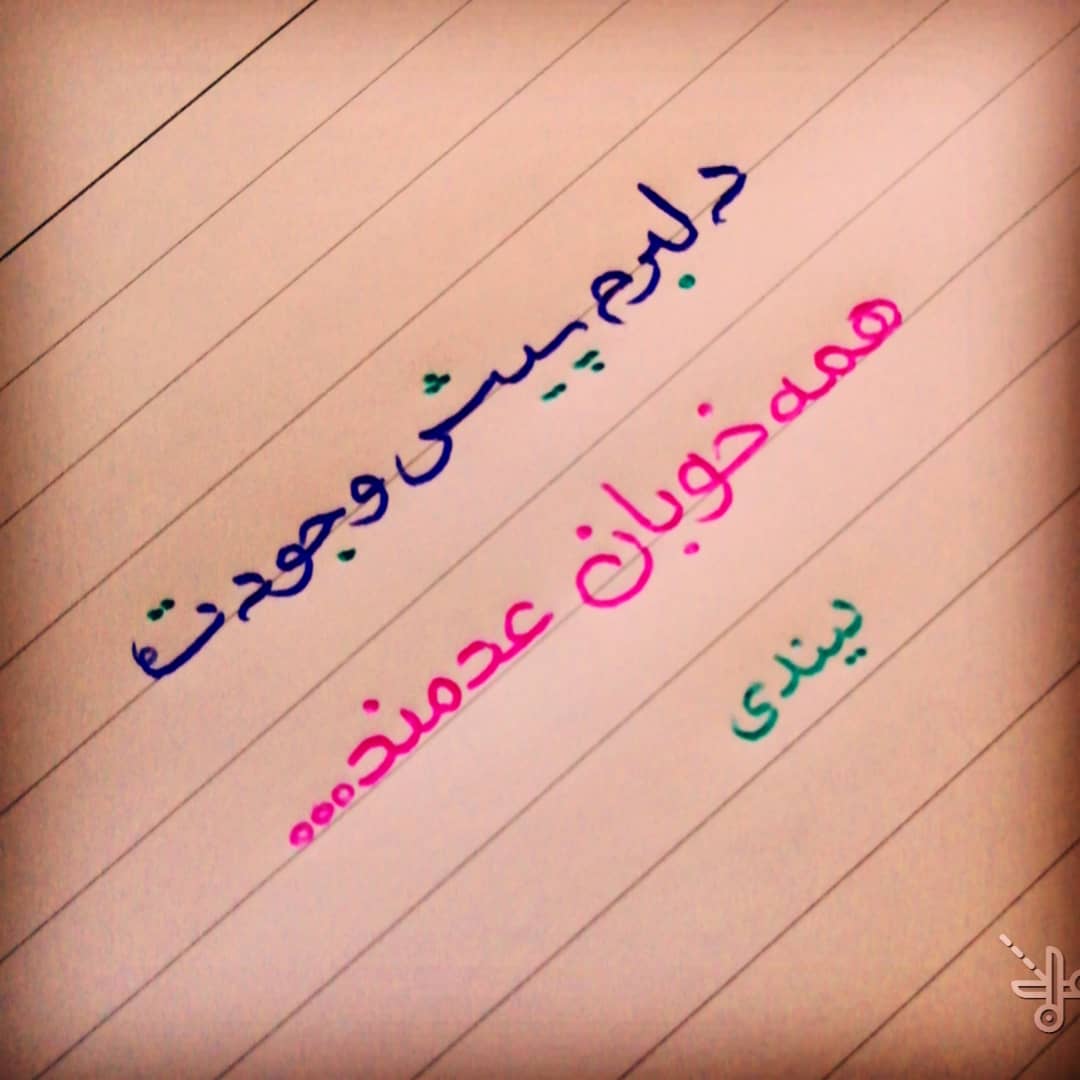 دلبرم پیش وجودت
همه خوبان عدمند...